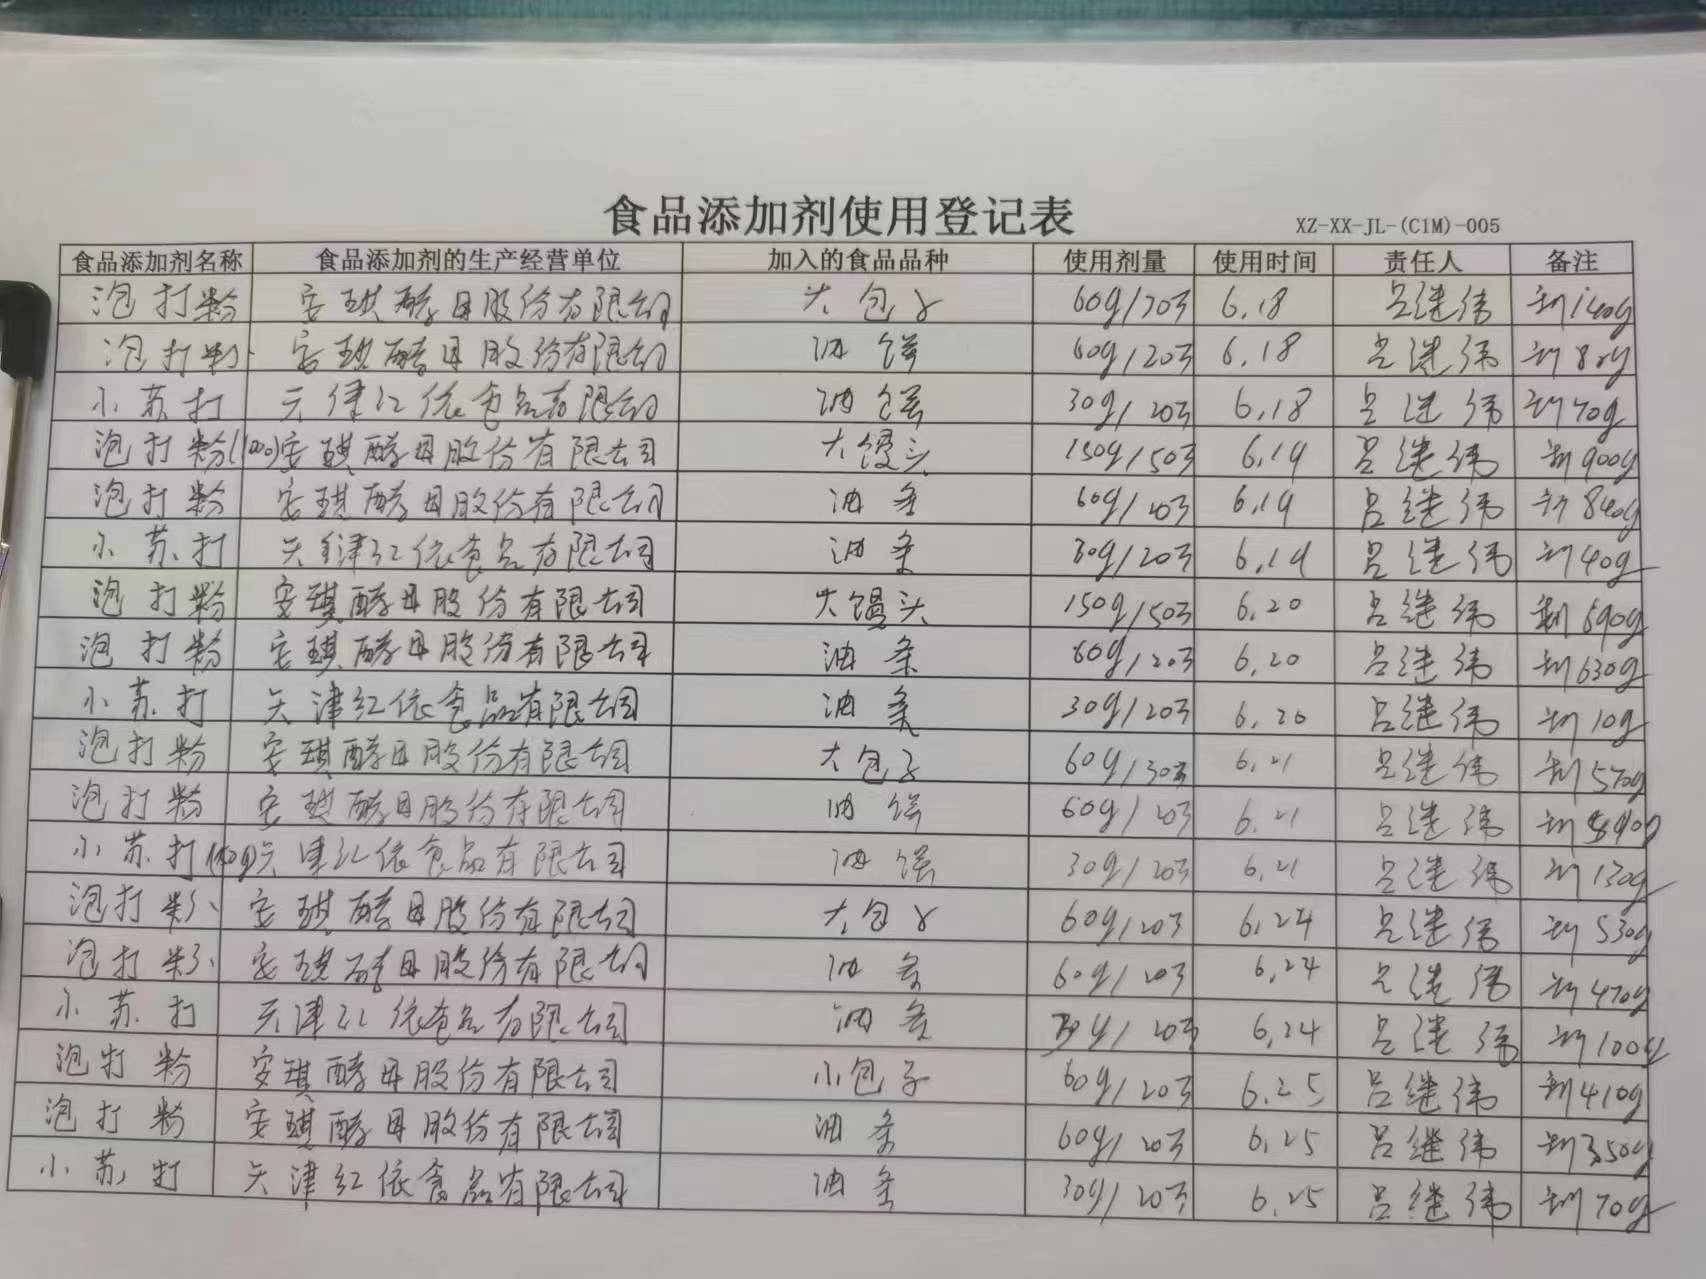 食品添加剂使用登记表
XZ-XX-JL-(C1M)-005
食品添加剂名称 食品添加剂的生产经营单位 加入的食品品种 使用剂量 使用时间 责任人 备注
泡打粉 安琪酵母股份有限公司 大包子 60g/20斤 6.18 吕继伟 剩140g
泡打粉 安琪酵母股份有限公司 油饼 60g/20斤 6.18 吕继伟 剩80g
小苏打 天津红依食品有限公司 油饼 30g/20斤 6.18 吕继伟 剩70g
泡打粉(1000) 安琪酵母股份有限公司 大馒头 150g/50斤 6.19 吕继伟 剩900g
泡打粉 安琪酵母股份有限公司 油条 60g/20斤 6.19 吕继伟 剩840g
小苏打 天津红依食品有限公司 油条 30g/20斤 6.19 吕继伟 剩40g
泡打粉 安琪酵母股份有限公司 大馒头 150g/50斤 6.20 吕继伟 剩690g
泡打粉 安琪酵母股份有限公司 油条 60g/20斤 6.20 吕继伟 剩630g
小苏打 天津红依食品有限公司 油条 30g/20斤 6.20 吕继伟 剩10g
泡打粉 安琪酵母股份有限公司 大包子 60g/30斤 6.21 吕继伟 剩570g
泡打粉 安琪酵母股份有限公司 油饼 60g/20斤 6.21 吕继伟 剩590g
小苏打 天津红依食品有限公司 油饼 30g/20斤 6.21 吕继伟 剩130g
泡打粉 安琪酵母股份有限公司 大包子 60g/20斤 6.24 吕继伟 剩530g
泡打粉 安琪酵母股份有限公司 油条 60g/20斤 6.24 吕继伟 剩470g
小苏打 天津红依食品有限公司 油条 30g/20斤 6.24 吕继伟 剩100g
泡打粉 安琪酵母股份有限公司 小包子 60g/20斤 6.25 吕继伟 剩410g
泡打粉 安琪酵母股份有限公司 油条 60g/20斤 6.25 吕继伟 剩350g
小苏打 天津红依食品有限公司 油条 30g/20斤 6.25 吕继伟 剩70g